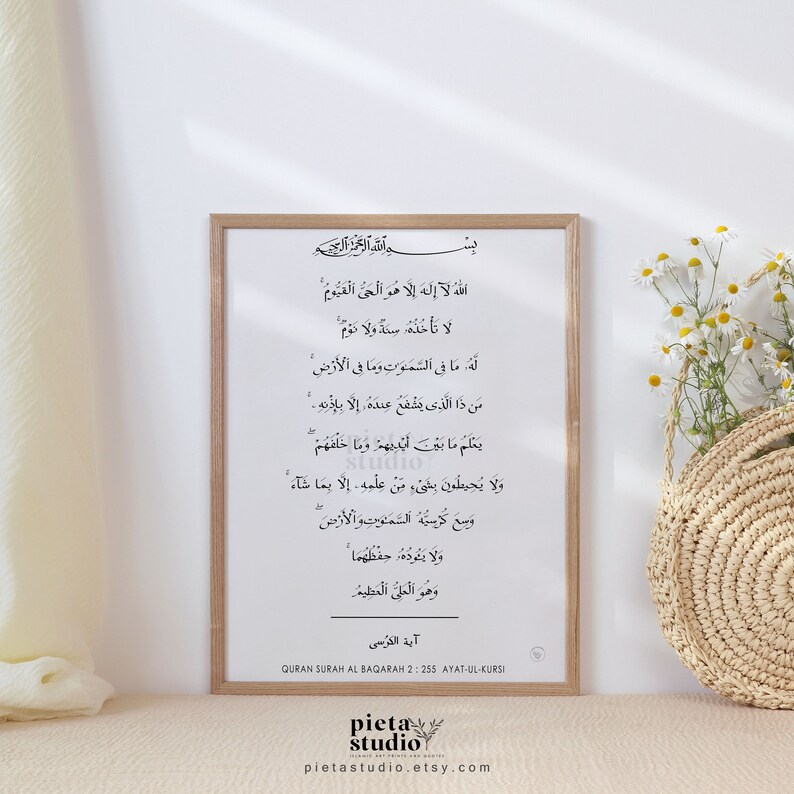 بِسْمِ اللَّهِ الرَّحْمَٰنِ الرَّحِيمِ
اللَّهُ لَآ إِلَـٰهَ إِلَّا هُوَ الْحَيُّ الْقَيُّومُ ۚ
لَا تَأْخُذُهُۥ سِنَةٌ وَلَا نَوْمٌ ۚ
لَّهُۥ مَا فِى السَّمَـٰوَٰتِ وَمَا فِى الْأَرْضِ ۗ
مَن ذَا الَّذِى يَشْفَعُ عِندَهُۥٓ إِلَّا بِإِذْنِهِۦ ۚ
يَعْلَمُ مَا بَيْنَ أَيْدِيهِمْ وَمَا خَلْفَهُمْ ۖ
وَلَا يُحِيطُونَ بِشَىْءٍ مِّنْ عِلْمِهِۦٓ إِلَّا بِمَا شَآءَ ۚ
وَسِعَ كُرْسِيُّهُ السَّمَـٰوَٰتِ وَالْأَرْضَ ۖ
وَلَا يَـُٔودُهُۥ حِفْظُهُمَا ۚ
وَهُوَ الْعَلِىُّ الْعَظِيمُ
آية الكرسى
QURAN SURAH AL BAQARAH 2 : 255 AYAT-UL-KURSI
pieta
studio
pieta
studio
ISLAMIC ART PRINTS AND QUOTES
pietastudio.etsy.com